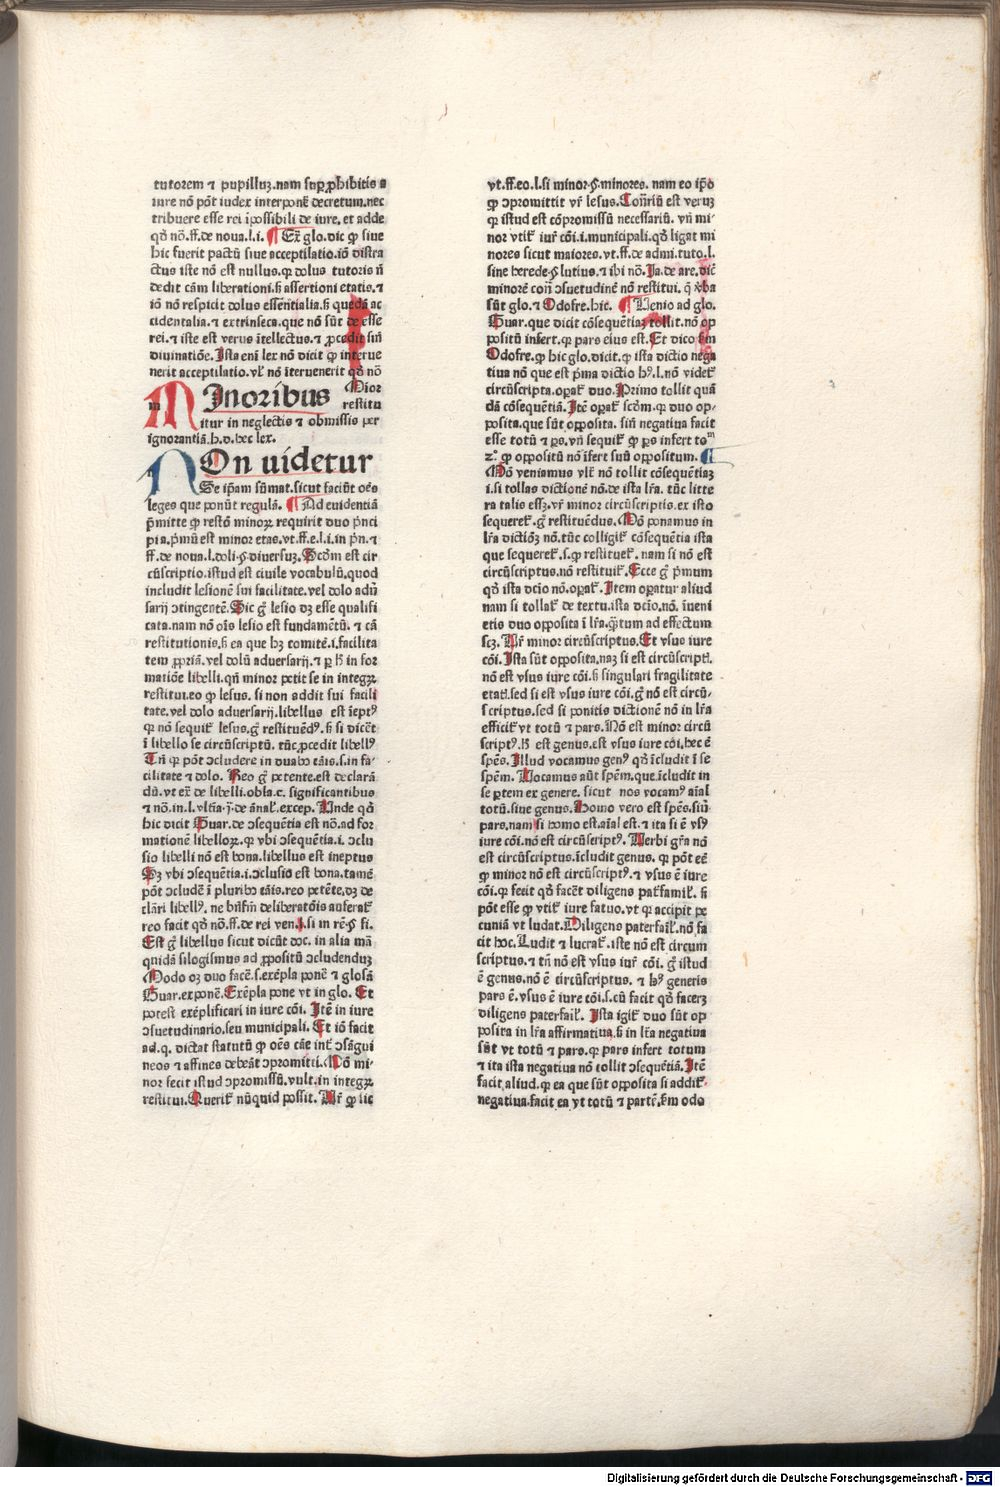 tutorem ⁊ pupilluꝫ.nam suꝑ ꝓhibitis a
iure nō pōt iudex interponē decretum.nec
tribuere esse rei īpossibili de iure. et adde
qđ nō.ff.de noua.l.i. ¶ Ex̄ glo.dic ꝙ siue
hic fuerit pactū siue acceptilatio.iō distra
ctus iste nō est nullus.qꝛ dolus tutoris n̄
dedit cām liberationi.ß assertioni etatis.⁊
iō nō respicit dolus essētialia.ß quedā ac
cidentalia.⁊ extrinseca.que nō sūt de esse
rei.⁊ iste est verus ītellectus.⁊ ꝓcedit sin̄
diuinatiōe. Ista eni lex nō dicit ꝙ interue
nerit acceptilatio.vl' nō īteruenerit qđ nō
MInoribus Mior
restitu
itur in neglectis ⁊ obmissis per
ignorantiā.h.d.hec lex.
NOn uidetur
Se ipam sūmat.sicut faciūt oēs
leges que ponūt regulā. ¶ Ad euidentiā
p̄mitte ꝙ restō minorꝝ requirit duo p̄nci
pia.p̄mū est minor etas.vt.ff.e.l.i.in p̄n.⁊
ff.de noua.l.doli.§.diuersuꝫ. Scōm est cir
cūscriptio.istud est ciuile vocabulū.quod
includit lesionē sui facilitate.vel dolo adū
sarij ↄtingentē. Sic ḡ lesio dꝫ esse qualifi
cata.nam nō oīs lesio est fundamētū. ⁊ cā
restitutionis.ß ea que hꝫ comitē.i.facilita
tem ꝓpriā.vel dolū aduersarij.⁊ ꝑ ħ in for
matiōe libelli.qn̄ minor petit se in integꝝ
restitui.eo ꝙ lesus. si non addit sui facili
tate.vel dolo aduersarij.libellus est īeptꝰ
qꝛ nō sequit̄ lesus.ḡ restituēdꝰ.ß si dicēt
ī libello se circūscriptū. tūc ꝓcedit libellꝰ
Tn̄ qꝛ pōt ↄcludere in duabꝰ cāis.s.in fa⸗
cilitate ⁊ dolo. Reo ḡ petente.est declarā
dū.vt ex̄ de libelli.obla.c. significantibus
⁊ nō.in.l.vltīa.§.de ānal'.excep. Unde qđ
hic dicit Guar.de ↄsequētia est nō.ad for
mationē libellorꝝ.qꝛ vbi ↄsequētia.i. ↄclu
sio libelli nō est bona.libellus est ineptus
Sꝫ vbi ↄsequētia.i.ↄclusio est bona.tamē
pōt ↄcludē ī pluribꝰ cāis.reo petēte.dꝫ de
clāri libellꝰ. ne bn̄fm̄ deliberatōis auferat̄
reo facit qđ nō.ff.de rei ven.l.si in rē.§ fi.
Est ḡ libellus sicut dicūt doc. in alia mā
quidā silogismus ad ꝓpositū ↄcludenduꝫ
Modo oꝫ duo facē.s.exēpla ponē ⁊ glosā
Guar.exponē. Exēpla pone vt in glo. Et
potest exēplificari in iure cōi. Itē in iure
ↄsuetudinario.seu municipali. Et iō facit
ad.q. dictat statutū ꝙ oēs cāe int̄ ↄsāgui
neos ⁊ affines debeāt ↄpromitti. Mō mi⸗
nor fecit istud ↄpromissū.vult.in integꝝ
restitui. Querit̄ nūquid possit. Ur̄ ꝙ sic
vt.ff.eo.l.si minor.§.minores. nam eo ip̄o
ꝙ ↄpromittit vr̄ lesus. Cōn̄riū est veruꝫ
qꝛ istud est cōpromissū necessariū. vn̄ mi⸗
nor vtit̄ iur̄ cōi.i.municipali.qđ ligat mi
nores sicut maiores.vt.ff.de admi.tuto.l.
sine herede.§ lutius.⁊ ibi nō. Ja.de are.dic̄
minorē con̄ ↄsuetudinē nō restitui.
sūt glo.⁊ Odofre.hic. ¶ Uenio ad glo.
Guar.que dicit cōsequētiaꝫ tollit.nō op
positū infert.qꝛ pars eius est. Et dico ßm
Odofre.ꝙ hic glo.dicit.ꝙ ista dictio nega
tiua nō que est p̄ma dictio hꝰ.l.nō videt̄
circūscripta.oꝑat̄ duo. Primo tollit quā
dā cōsequētiā. Itē oꝑat̄ scōm.ꝙ duo op⸗
posita.que sūt opposita. sin̄ negatiua facit
esse totū ⁊ ꝑs.vn̄ sequit̄ ꝙ ꝑs infert to
ꝙ oppositū nō īfert suū oppositum. ¶
Mō veniamus vlr̄ nō tollit cōsequētiaꝫ
i.si tollas dictionē nō.de ista lr̄a. tūc litte
ra talis essꝫ.vr̄ minor circūscriptis.ex isto
sequeret̄.ḡ restituēdus. Mō ponamus in
lr̄a dictiōꝫ nō.tūc colligit̄ cōsequētia ista
que sequeret̄.s.ꝙ restituet̄. nam si nō est
circūscriptus.nō restituit̄. Ecce ḡ p̄mum
qđ ista dc̄io nō.oꝑat̄. Item oꝑatur aliud
nam si tollat̄ de textu.ista dc̄io.nō. īueni
etis duo opposita ī lr̄a.ꝙtum ad effectum
scꝫ. Ur̄ minor circūscriptus. Et vsus iure
cōi. Ista sūt opposita.naꝫ si est circūscript'.
nō est vsus iure cōi.ß singulari fragilitate
etatꝭ.sed si est vsus iure cōi.ḡ nō est circū⸗
scriptus.sed si ponitis dictionē nō in lr̄a
efficit̄ vt totū ⁊ pars. Nō est minor circū
scriptꝰ.ħ est genus.est vsus iure cōi.hec ē
spēs. Illud vocamus genꝰ qđ īcludit ī se
spēm. Uocamus aūt spēm.que īcludit in
se ꝑtem ex genere. sicut nos vocamꝰ aīal
totū.sine genus. Homo vero est spēs.siū
pars.nam si homo est.aīal est.⁊ ita si ē vsꝰ
iure cōi.nō est circūscriptꝰ. Uerbi gr̄a nō
est circūscriptus.īcludit genus. qꝛ pōt eē
ꝙ minor nō est circūscriptꝰ.⁊ vsus ē iure
cōi.qꝛ fecit qđ facēt diligens pat̄famil'. ß
pōt esse ꝙ vtit̄ iure fatuo.vt qꝛ accipit pe
cuniā vt ludat. Diligens paterfail'.nō fa
cit hoc. Ludit ⁊ lucrat̄. iste nō est circum
scriptus.⁊ tn̄ nō est vsus iur̄ cōi. ḡ istud
ē genus.nō ē circūscriptus. ⁊ hꝰ generis
pars ē.vsus ē iure cōi.s.cū facit qđ facerꝫ
diligens paterfail'. Ista igit̄ duo sūt op
posita in lr̄a affirmatiua.ß in lr̄a negatiua
sūt vt totū ⁊ pars.qꝛ pars infert totum
⁊ ita ista negatiua nō tollit ↄsequētiā. Itē
facit aliud.qꝛ ea que sūt opposita si addit̄
negatiua.facit ea vt totū ⁊ partē.ßm odo
Digitalisierung gefördert durch die Deutsche Forschungsgemeinschaft - DFG